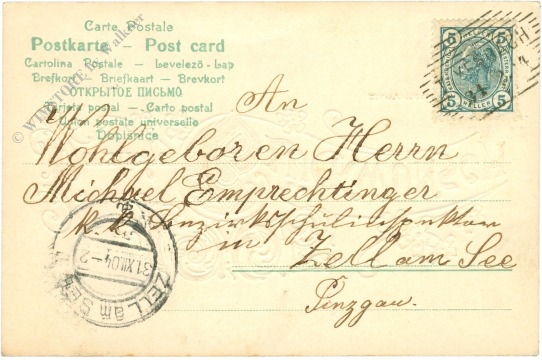 Carte Postale
Postkarte – Post card
Cartolina Postale – Levelező-Lap
Brefkort – Briefkaart – Brevkort
ОТКРЫТОЕ ПИСЬМО
Tarjeta postal – Carto postal
Union postale universelle
Dopisnice
© WINTORE R. Walkner
5 5
5 HELLER 5
An
Wohlgeboren Herrn
Michael Emprechtinger
k. k. Bezirksschulinspektor
in
Zell am See
Pinzgau.
31.XII.04
ZELL am SEE